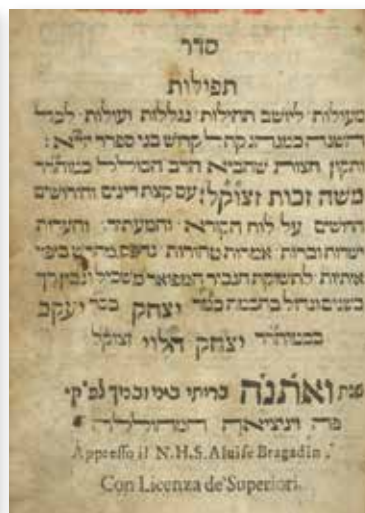 סדר
תפילות
מעולות ליושב תהילות נגללות ועולות לכל
השנה כמנהג קהל קדוש בני ספרד
ותקון חצות שהביא הרב המהולל כמוהר״ר
משה זכות זצוק״ל: עם קצת דינים וחדושים
החשים על לוח הקורא והמעתיד והערות
ישרות וברות אמרות טהורות נדפס מחדש ביפי
אותיות לתשוקת הגביר המפואר משכיל ונבון רך
בשנים וגדול בחכמה כמר יצחק בכר יעקב
בכמוהר״ר יצחק הלוי זצוק״ל
שנת ואתנה בריתי ביני ובינך לפ״ק
פה ויניציאה המהוללה
Appresso il N.H.S. Aluise Bragadin.
Con Licenza de' Superiori.